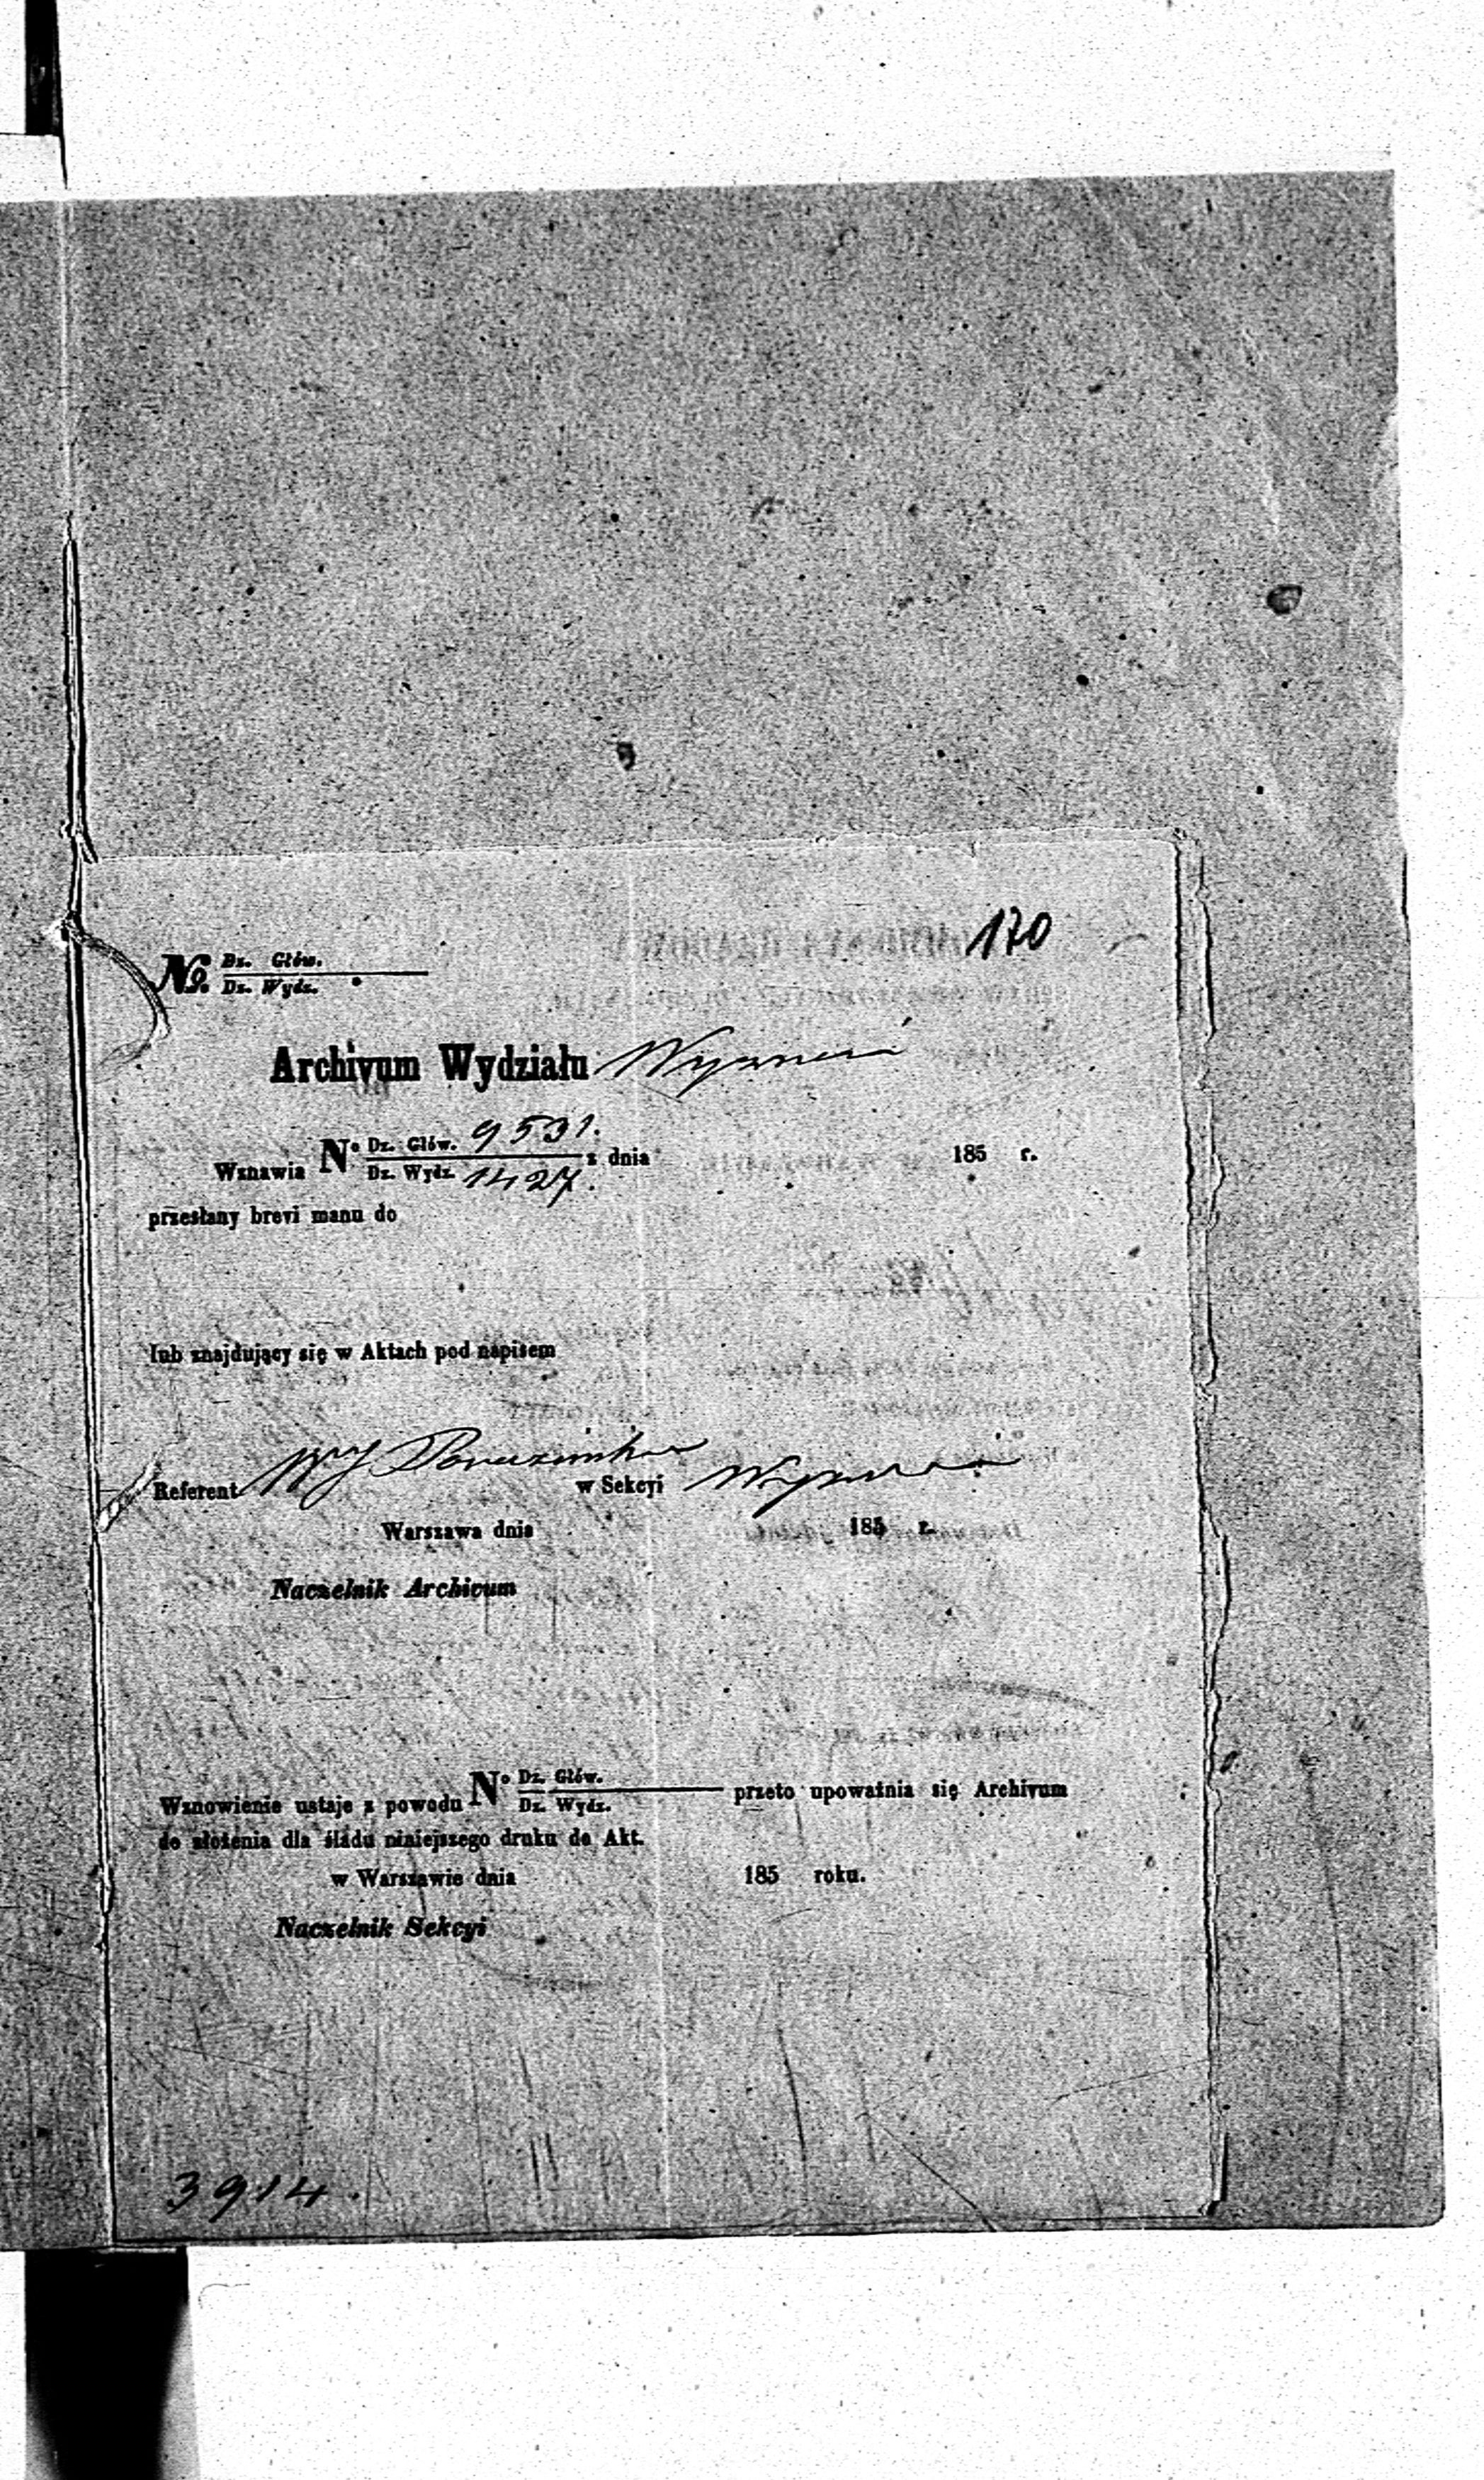 170
No. Dz. Głów.
Dz. Wydz.
Archivum Wydziału Wyznań
Wznawia No Dz. Głów. 9531.
Dz. Wydz. 1427. z dnia 185 r.
przesłany brevi manu do
lub znajdujący się w Aktach pod napisem
Referent w Sekcyi Wyznań
Warszawa dnia 185 r.
Naczelnik Archivum
Wznowienie ustaje z powodu No Dz. Głów. przeto upoważnia się Archivum
Dz. Wydz.
do złożenia dla śladu niniejszego druku do Akt.
w Warszawie dnia 185 roku.
Naczelnik Sekcyi
3914.